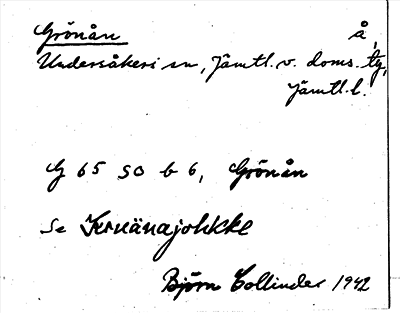 Grönån å,
Undersåkers sn, Jämtl. v. doms. tg,
Jämtl. l.
G 65 SO b 6, Grönån
Se Kruänajohkke
Björn Collinder 1942